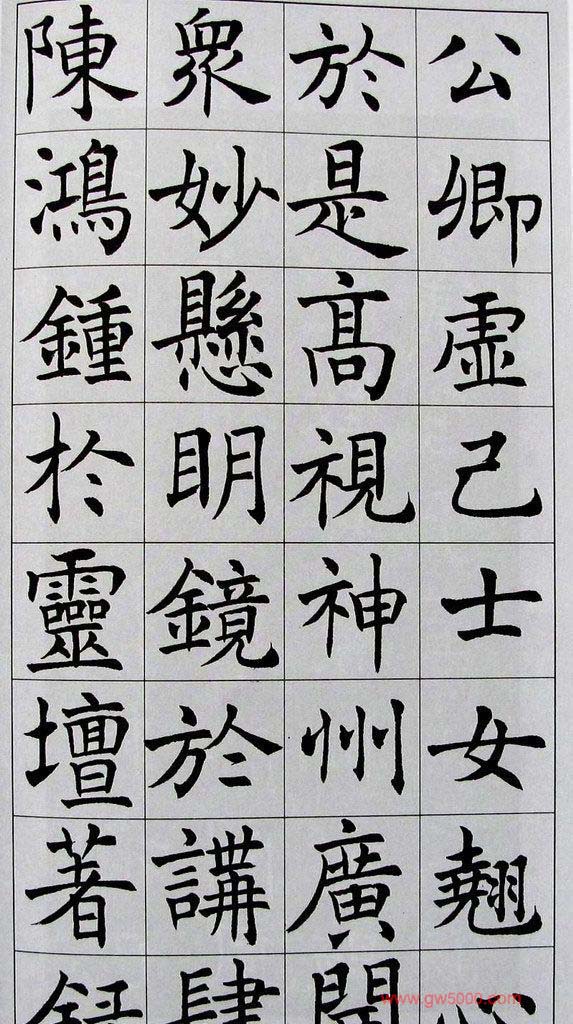 公卿虛己士女翹心
於是高視神州廣開
衆妙懸明鏡於講肆
陳鴻鍾於靈壇著錄
www.gw5000.com